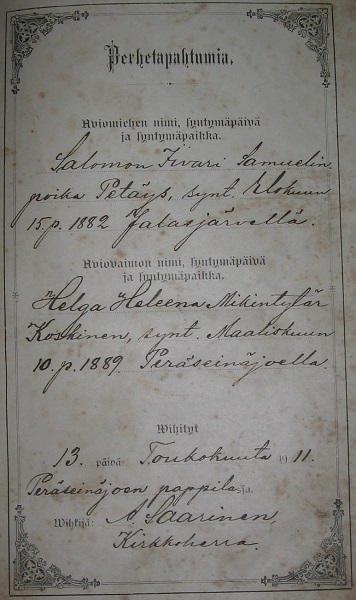 Perhetapahtumia.
Aviomiehen nimi, syntymäpäivä
ja syntymäpaikka.
Salomon Iivari Samuelin
poika Petäys, synt. Elokuun
15 p. 1882 Jalasjärvellä.
Aviovaimon nimi, syntymäpäivä
ja syntymäpaikka.
Helga Heleena Mikintytär
Koskinen, synt. Maaliskuun
10. p. 1889. Peräseinäjoella.
Wihityt
13. päivä Toukokuuta 1911.
Peräseinäjoen pappilassa.
Wihkijä: A. Saarinen,
Kirkkoherra.